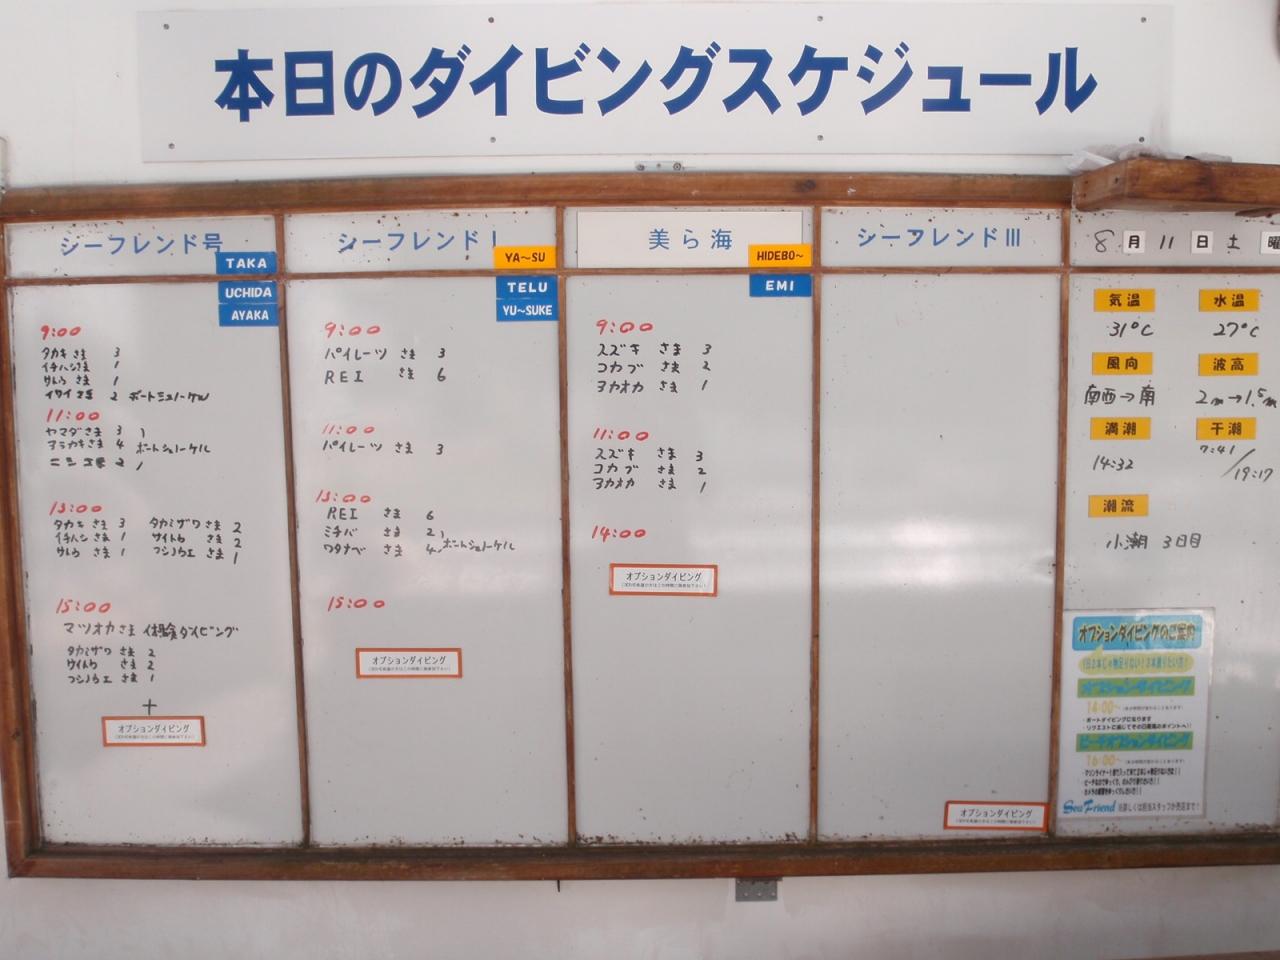 本日のダイビングスケジュール
シーフレンド号
TAKA
UCHIDA
AYAKA
9:00
タカキ さま 3
イチハシさま 1
サトウ さま 1
イワイ さま 2 ボートシュノーケル
11:00
ヤマダさま 3
アラカキさま 4 ボートシュノーケル
13:00
タカキ さま 3 タカミザワさま 2
イチハシ さま 1 サイトウ さま 2
サトウ さま 1 フジノウエ さま 1
15:00
マツオカさま 体験ダイビング
タカミザワ さま 2
サイトウ さま 2
フジノウエ さま 1
+
オプションダイビング
シーフレンド I
YA〜SU
TELU
YU〜SUKE
9:00
パイレーツ さま 3
REI さま 6
11:00
パイレーツ さま 3
13:00
REI さま 6
ミチバ さま 2
ワタナベ さま 4 ボートシュノーケル
15:00
オプションダイビング
美ら海
HIDEBO〜
EMI
9:00
スズキ さま 3
コカブ さま 2
ヨカオカ さま 1
11:00
スズキ さま 3
コカブ さま 2
ヨカオカ さま 1
14:00
オプションダイビング
シーフレンドIII
オプションダイビング
8 月 11 日 土 曜
気温 水温
31°C 27°C
風向 波高
南西→南 2m→1.5m
満潮 干潮
14:32 7:41/19:17
潮流
小潮 3日目
オプションダイビングのご案内
1日2本じゃ物足りない!3本潜りたい方!
オプションダイビング
14:00~
・ボートダイビングになります
・リクエストに応じてその日最高のポイントへ!!
ビーチオプションダイビング
16:00~
Sea Friend ※詳しくは担当スタッフか売店まで!